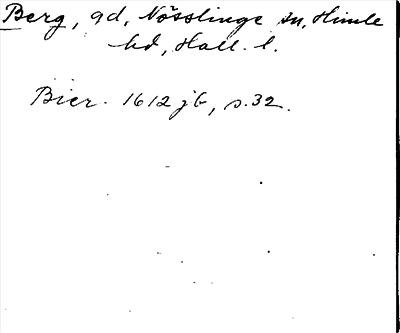 Berg, gd, Nösslinge sn, Himle
hd, Hall. l.
Bier. 1612 jb, s. 32.